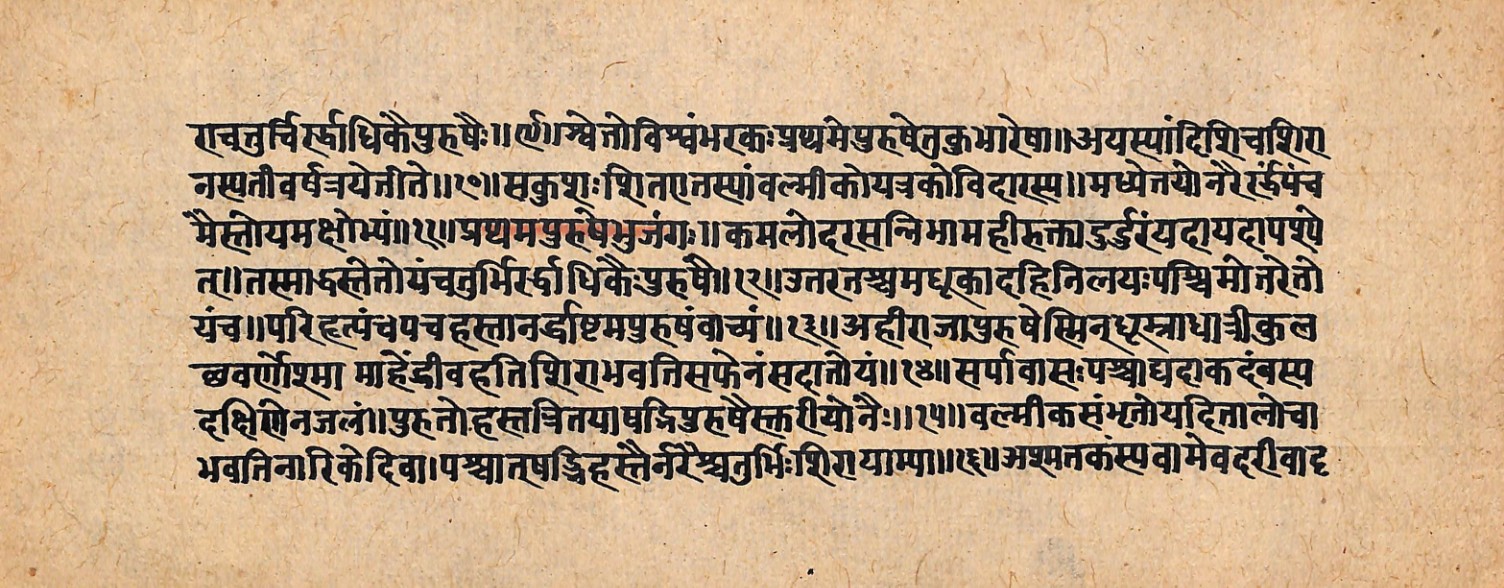 राचतुर्चिर्रर्द्धाधिकैपुरुषैः॥र्ण॥श्वेतोविश्वंभरकःप्रथमेपुरुषेतुकुभारेषा॥अयस्यांदिशिचशिरा
नस्पतीवर्षत्रयेजीते॥१०॥सकुशःशितएतस्यांवल्मीकोयत्रकोविदारस्य॥मध्येतयोनरैरर्द्धपंच
मैस्तोयमक्षोभ्यं॥११॥प्रथमपुरुषेभुजंगः॥कमलोदरसन्निभामहीरुक्त्याडुर्डुरंयदायदापश्ये
त॥तस्माद्धस्तेतोयंचतुर्भिरर्द्धाधिकैःपुरुषैौ॥१२॥उतरतश्चमधूकादहिनिलयःपश्चिमोत्तरेतो
यंच॥परिहृत्पंचपचहस्तानर्द्धाष्टमपुरुषंवाच्यं॥१३॥अहीराजापुरुषेस्मिन्धूम्राधात्रीकुल
छवर्णोश्मा माहेंद्रीवहतिशिराभवतिसफेनंसदातोयं॥१४॥सर्पावासःपश्चाद्यदाकदंबस्प
दक्षिणेनजलं॥पुरुतोहस्तत्रितयाषद्भिपुरुषैस्तरीयोनैः॥१५॥वल्मीकसंभृतोयदितालोचा
भवतिनारिकेदिवा।पश्चात्षड्भिहस्तैर्नरैश्चतुर्भिःशिरायाम्पा॥१६॥अश्मतकंस्पवामेवदरीवादृ